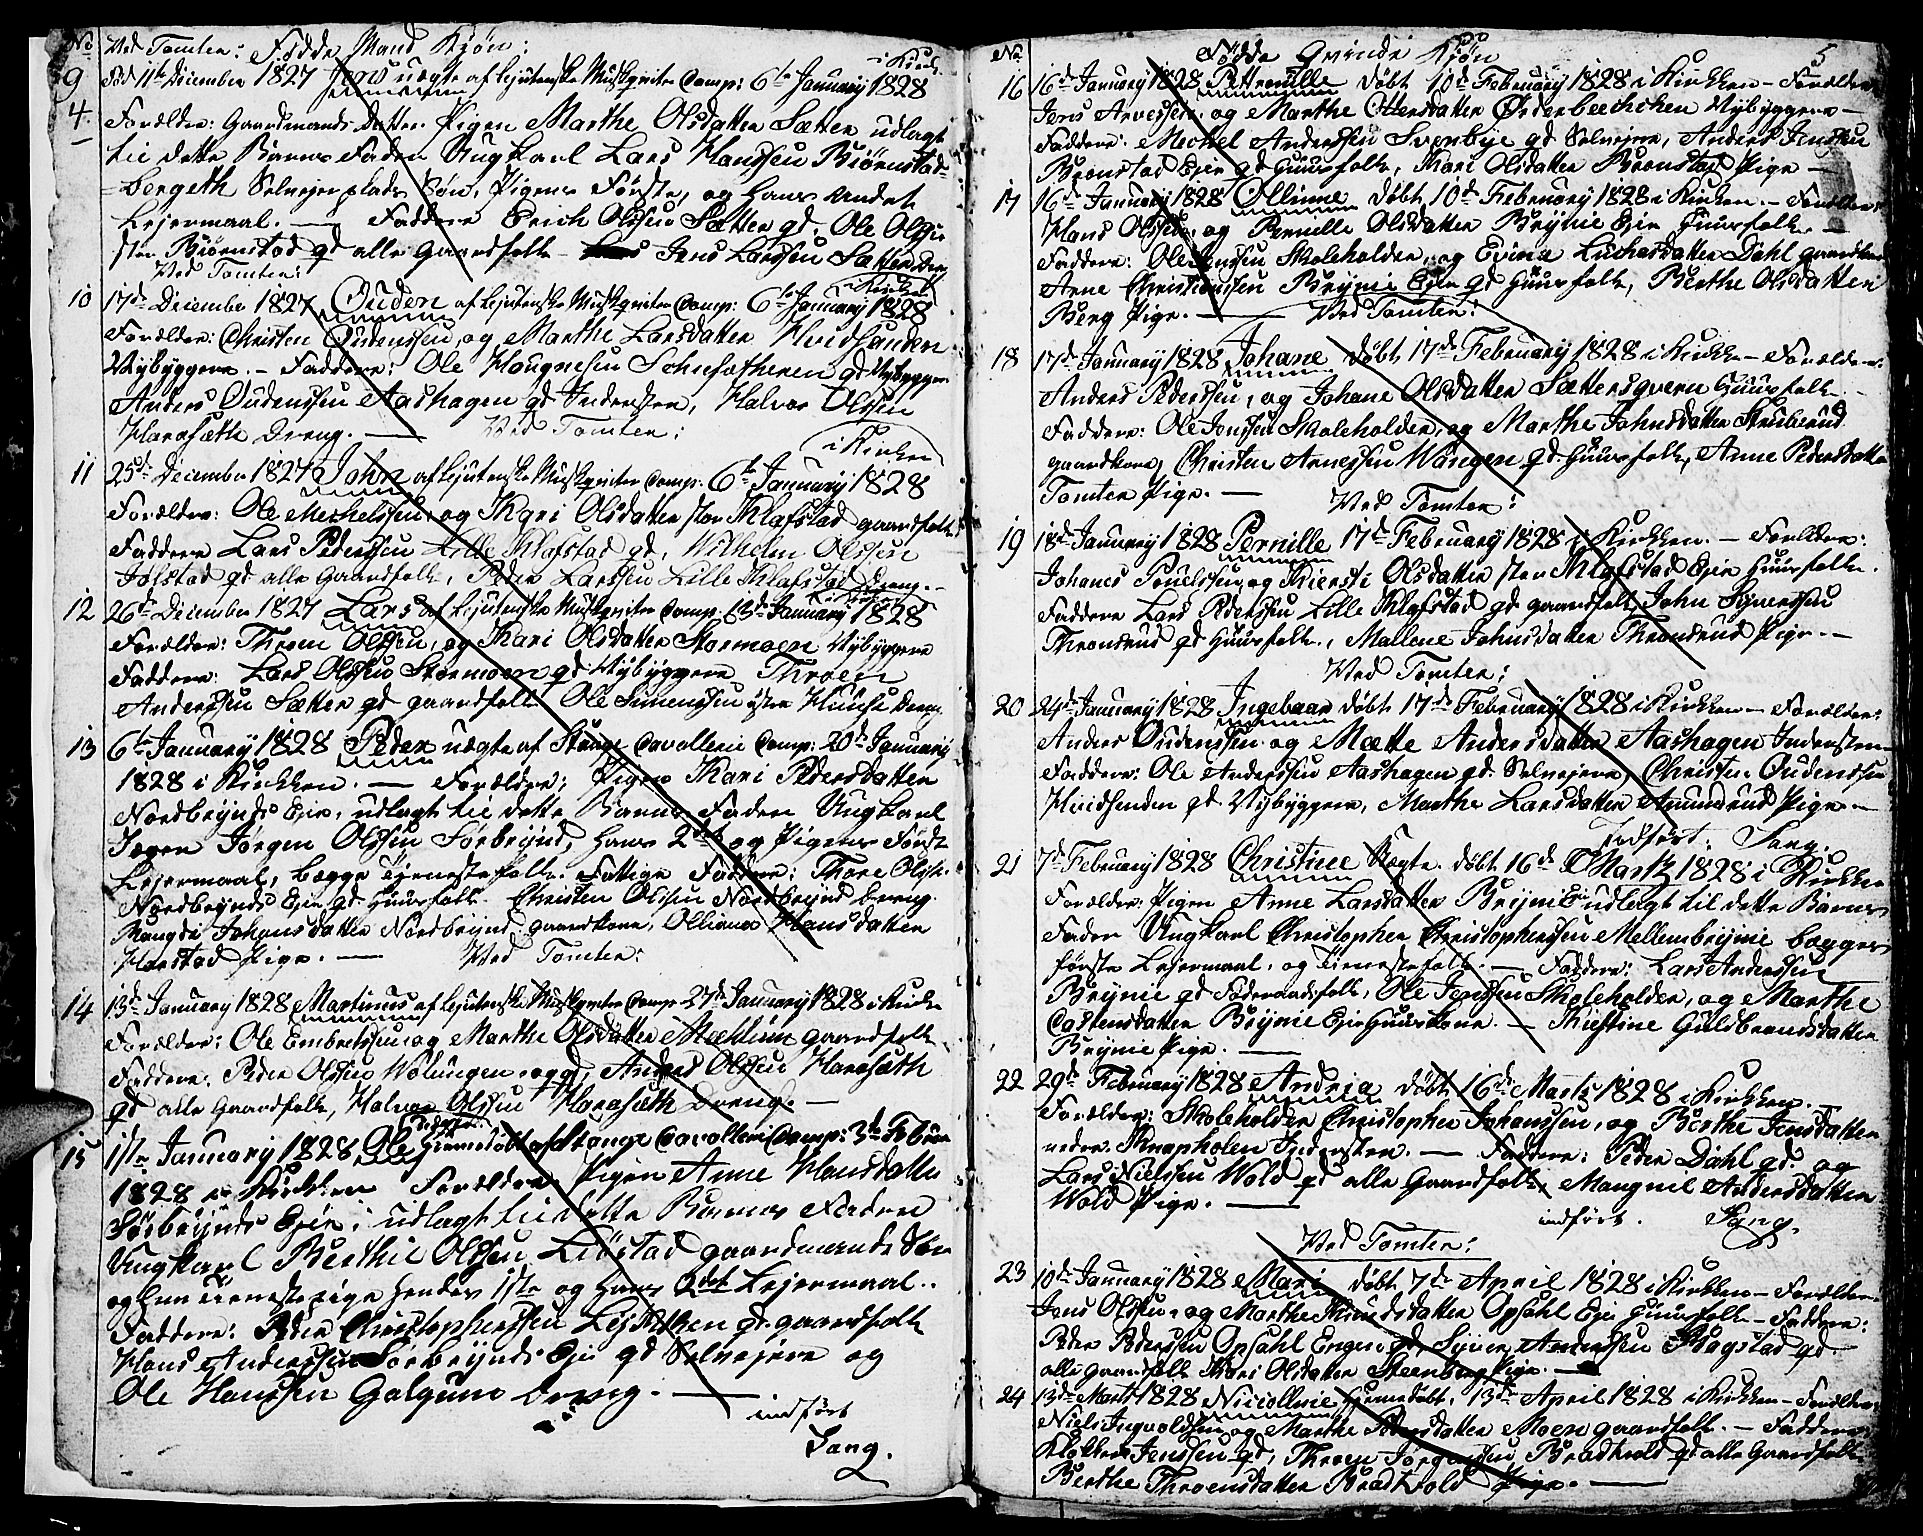 No Ved Tomten: Fødde Mand Kjøn:
9 Fød 11te December 1827 Jens uægte af Lejutenske Musqviter Comp: 6te January 1828 i Kirck.
4. Forældre: Gaardmands Datter Pigen Marthe Olsdatter Sætter udlagt
til dette Barns Fader Ungkarl Lars Hanssen Biørnstad-
bergeth Selvejerplads Søn, Pigens Første, og Hans Andet
Lejermaal. — Faddere Erich Olssen Sætter gd. Ole Olsse
sten Biørnstad gd alle Gaardfolk Jens Larssen Sætter Dreng
Ved Tomten:
i Kirken
10 17de December 1827 Ouden af Lejutenske Musqviter Comp: 6te January 1828
Forældre: Christen Oudenssen, og Marthe Larsdatter Hvidsanden
Nybyggere. – Faddere: Ole Haugnessen gd Nybygger
Anders Oudenssen Aashagen gd Indersten, Halvor Olssen
Harasæth Dreng. — Ved Tomten:
i Kirken
11 25de December 1827 John af Lejutenske Musqviter Comp. 6te January 1828
Forældre: Ole Mechelssen, og Kari Olsdatter stor Klafstad gaardfolk
Faddere Lars Pederssen Lille Klafstad gd. Wilhelm Olssen
Jølstad gd alle Gaardfolk, Peder Larssen Lille Klafstad Dreng. –
12 26de December 1827 Lars af Lejutenske Musqviter Comp. 13de January 1828
Forældre: Throen Olssen, og Kari Olsdatter Stormoen Nybyggere
Faddere: Lars Olssen Stormoen gd. Nybyggere Throen
Anderssen Sætter gd gaardfolk Ole Simenssen Dreng
13 6te January 1828 Peder uægte af Stange Cavallerie Comp: 20de January
1828 i Kirkken. — Forældre: Pigen Kari Pedersdatter
Nordbrynds Eje, udlagt til dette Barns Fader Ungkarl
Jørgen Olssen Sørbrynd, Hans 2det og Pigens Første
Lejermaal, begge Tjenestefolk. Fattige Faddere: Thore Olsse.
Nordbrynds Eje gd Huusfolk. Christen Olssen Nordbrynd Dreng.
Johansdatter Nordbrynd gaardkone, Olliana Hansdatter
Harstad Pige. — Ved Tomten:
14 13de January 1828 Martinus af Lejutenske Musqviter Comp 27de January 1828 i Kirke
Forældre: Ole Embretssen og Marthe Olsdatter Mæhlum gaardfolk
Faddere: Peder Olssen Wolungen, og gd, Anders Olssen Harasæth
gd alle Gaardfolk, Halvor Olssen Harasæth Dreng. —
15 1ste January 1828 Ole Hjemedøbt af Stange Cavallerie Comp: 3de Februar
1828 i Kirkken Forældre Pigen Anne Hansdatter
Sørbrynds Eje; udlagt til dette Barns Fader
Ungkarl Berthil Olssen Liøstad gaardmands Søn
og Hun tienestepige Hendes 1ste og Hans 2det Lejermaal.
Faddere: Peder Christopherssen gd. gaardfolk
Hans Anderssen Sørbrynds Eje gd Selvejere og
Ole Hanssen Galgum Dreng. —
indført
Sang.
No Fødde Qvinde Kjøn 5
16 16de January 1828 Petternille døbt 10de February 1828 i Kirkken – Forældre
Jens Arvessen, og Marthe Ottersdatter Nybyggere —
Faddere: Mechel Anderssen Svenbye gd Selvejere, Anders Jenssen
Brønstad Eje gd Huusfolk, Kari Olsdatter Brønstad Pige —
17 16de January 1828 Ollinne døbt 10de February 1828 i Kirken. – Forældre
Hans Olssen, og Pernelle Olsdatter Brynie Eje Huusfolk —
Faddere: Ole Jenssen Skoleholder, og Evina Luchasdatter Dahl gaardkone
Arne Christianssen Brynie Eje gd Huusfolk, Berthe Olsdatter
Berg Pige. — Ved Tomten:
18 17de January 1828 Johane døbt 17de February 1828 i Kirkke – Forældre:
Anders Pederssen, og Johane Olsdatter Sættersqvern Huusfolk
Faddere: Ole Jenssen Skoleholder, og Marthe Johnsdatter Struberud
gaardkone, Christen Arnessen Wangen gd. Huusfolk, Anne Pedersdatter
Tomten Pige. — Ved Tomten:
19 18de January 1828 Pernille 17de February 1828 i Kirkken. – Forældre:
Johanes Pouelssen, og Kiersti Olsdatter stor Klafstad Eje Huusfolk.
Faddere Lars Pederssen Lille Klafstad gd gaardfolk, John Syverssen
Throndrud gd Huusfolk, Mallene Johnsdatter Throndrud Pige. –
Ved Tomten:
20 24de January 1828 Ingebaar døbt 17de February 1828 i Kirkken – Forældre:
Anders Oudenssen og Mætte Andersdatter Aashagen Indersten
Faddere: Ole Anderssen Aashagen gd. Selvejere, Christen Oudenssen
Hvidsanden gd Nybyggere, Marthe Larsdatter Amundrud Pige –
Indført. Sang.
21 7de February 1828 Christine Uægte. døbt 16de Martz 1828 i Kirkke
Forældre: Pigen Anne Larsdatter Brynie Eje udlagt til dette Barns
Fader Ungkarl Christopher Christopherssen Mellembrynie begges
første Lejermaal, og Tienestefolk. — Faddere: Lars Anderssen
Brynie gd Føderaadsfolk, Ole Jenssen Skoleholder, og Marthe
Castensdatter Brynie Eje Huuskone. — Kiestine Guldbrandsdatter
Brynie Pige. —
22 29de February 1828 Andria døbt 16de Martz 1828 i Kirkken. –
Forældre: Skoleholder Christopher Johanssen, og Berthe Jensdatter
nedre Knapholen Indersten. — Faddere: Peder Dahl gd. og
Lars Nielssen Wold gd alle Gaardfolk, Mangnil Andersdatter
Wold Pige. —
indført. Sang.
Ved Tomten:
23 10de January 1828 Mari døbt 7de April 1828 i Kirkken – Forældre
Jens Olssen, og Marthe Knudsdatter Opsahl Eje Huusfolk – Faddere:
Peder Pederssen Opsahl Engen gd, Syver Anderssen Bagstad gd
alle gaardfolk Kari Olsdatter Steenberg Pige. —
24 13de Martz 1828 Nicolline Hjemedøbt. 13de April 1828 i Kirkken – Forældre
Niels Ingvoldssen, og Marthe Pedersdatter Moen gaardfolk. – Faddere
Jenssen gd, Throen Jørgenssen Bradtvold gd alle Gaardfolk
Berthe Throensdatter Bradtvold Pige. —